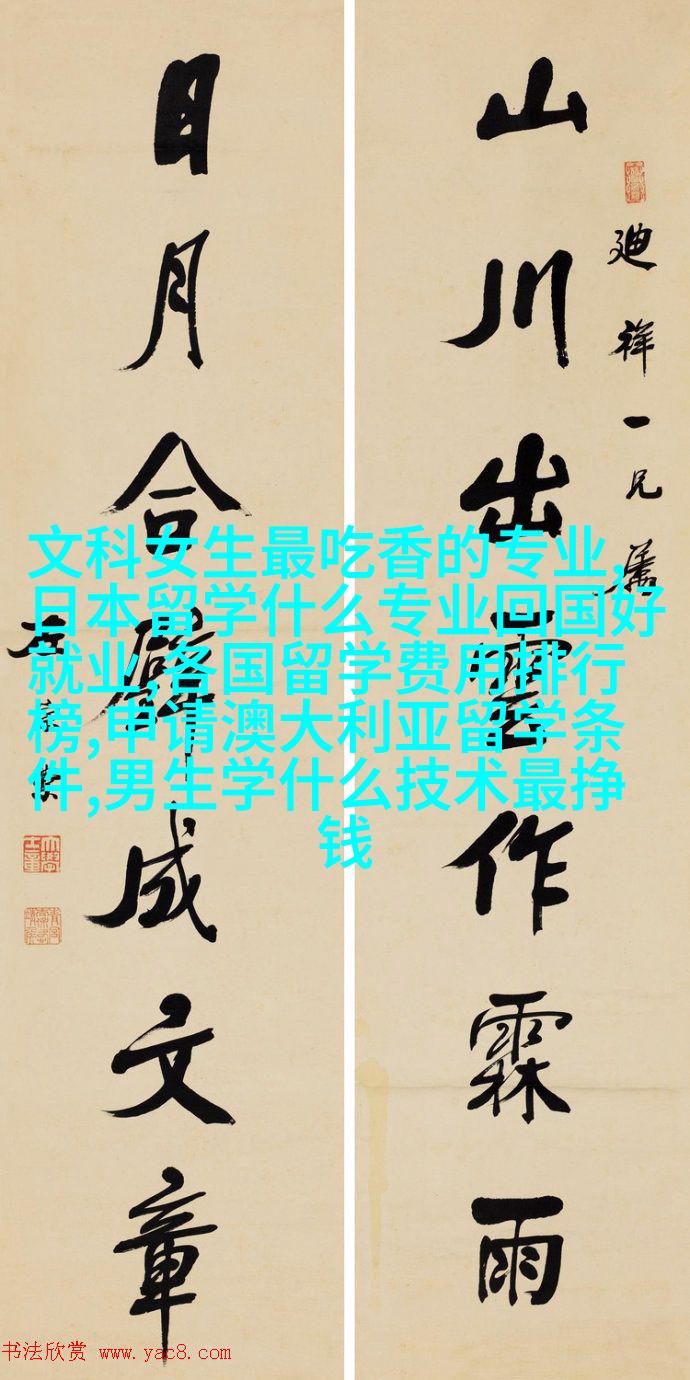 山川出雲作霖雨
廸祥一兄屬
日月合璧成文章
左宗棠
文科女生最吃香的专业,
日本留学什么专业回国好
就业,各国留学费用排行
榜,申请澳大利亚留学条
件,男生学什么技术最挣
钱
书法欣赏 www.yac8.com